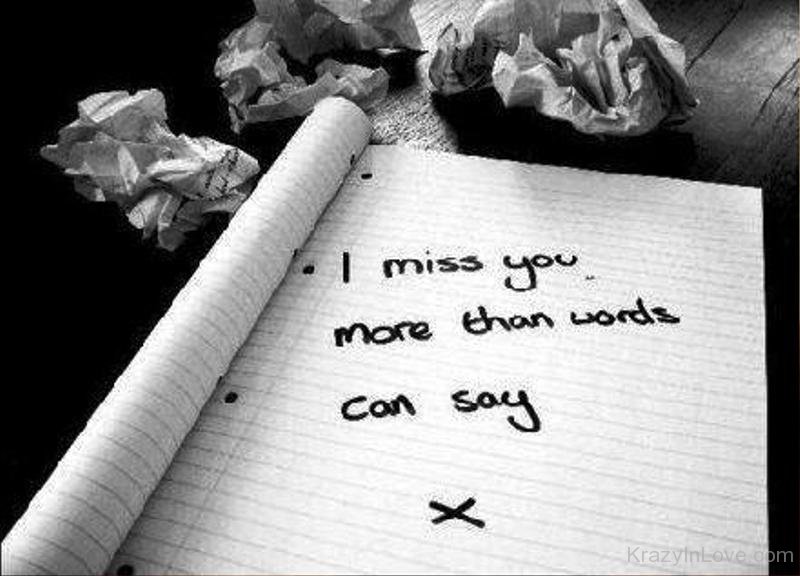 I miss you
more than words
can say
x
KrazyInLove.com